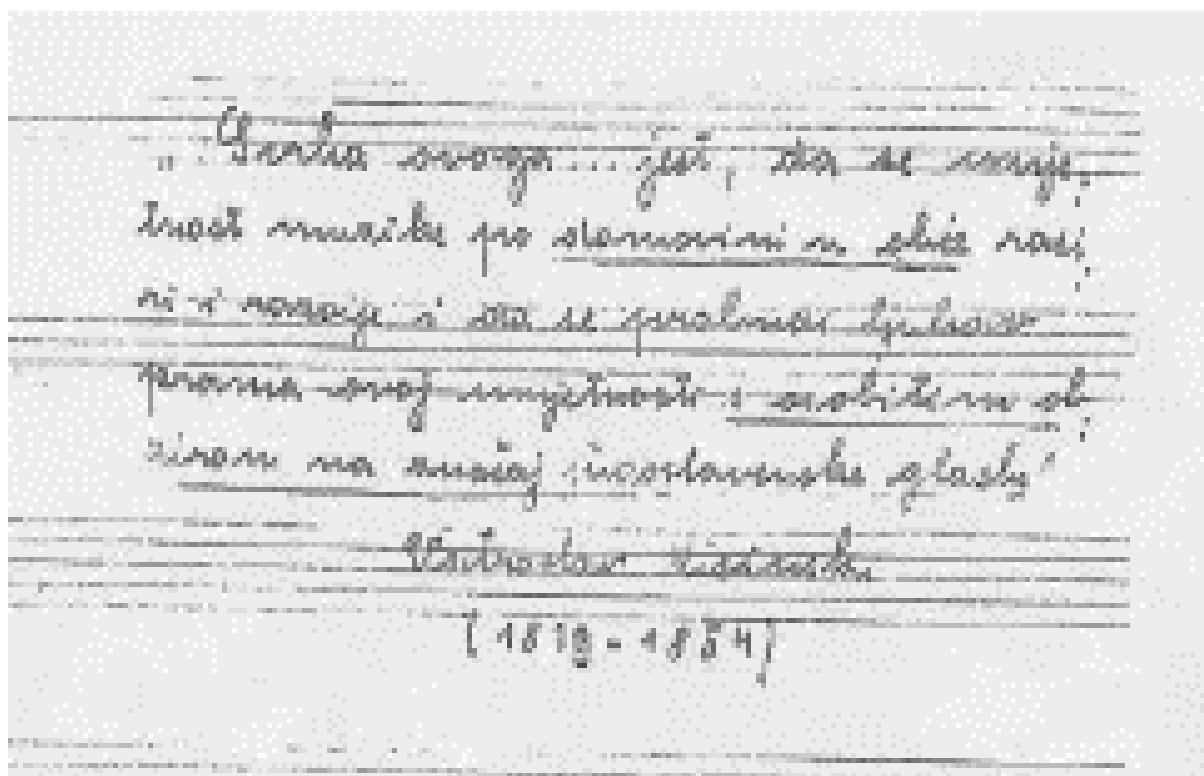 „Svrha ovoga... jest, da se umje,
tnost muzike po domovini u obće raši,
ri i razvije i da se probudi ljubav
prama ovoj umjetnosti s osobitim ob,
zirom na muziaj jugoslavenske glasbe"
Vatroslav Lisinski
(1819-1854)